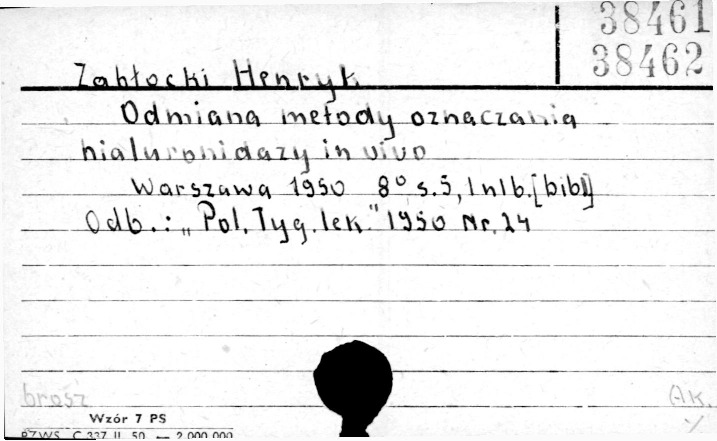 38461
38462
Zabłocki Henryk
Odmiana metody oznaczania
hialuronidazy in vivo
Warszawa 1950 8° s. 5, 1 nlb. [bibl]
Odb.: „Pol. Tyg. lek." 1950 Nr. 24
brosz
Ak.
Wzór 7 PS
PZWS C 337 II 50 — 2.000.000